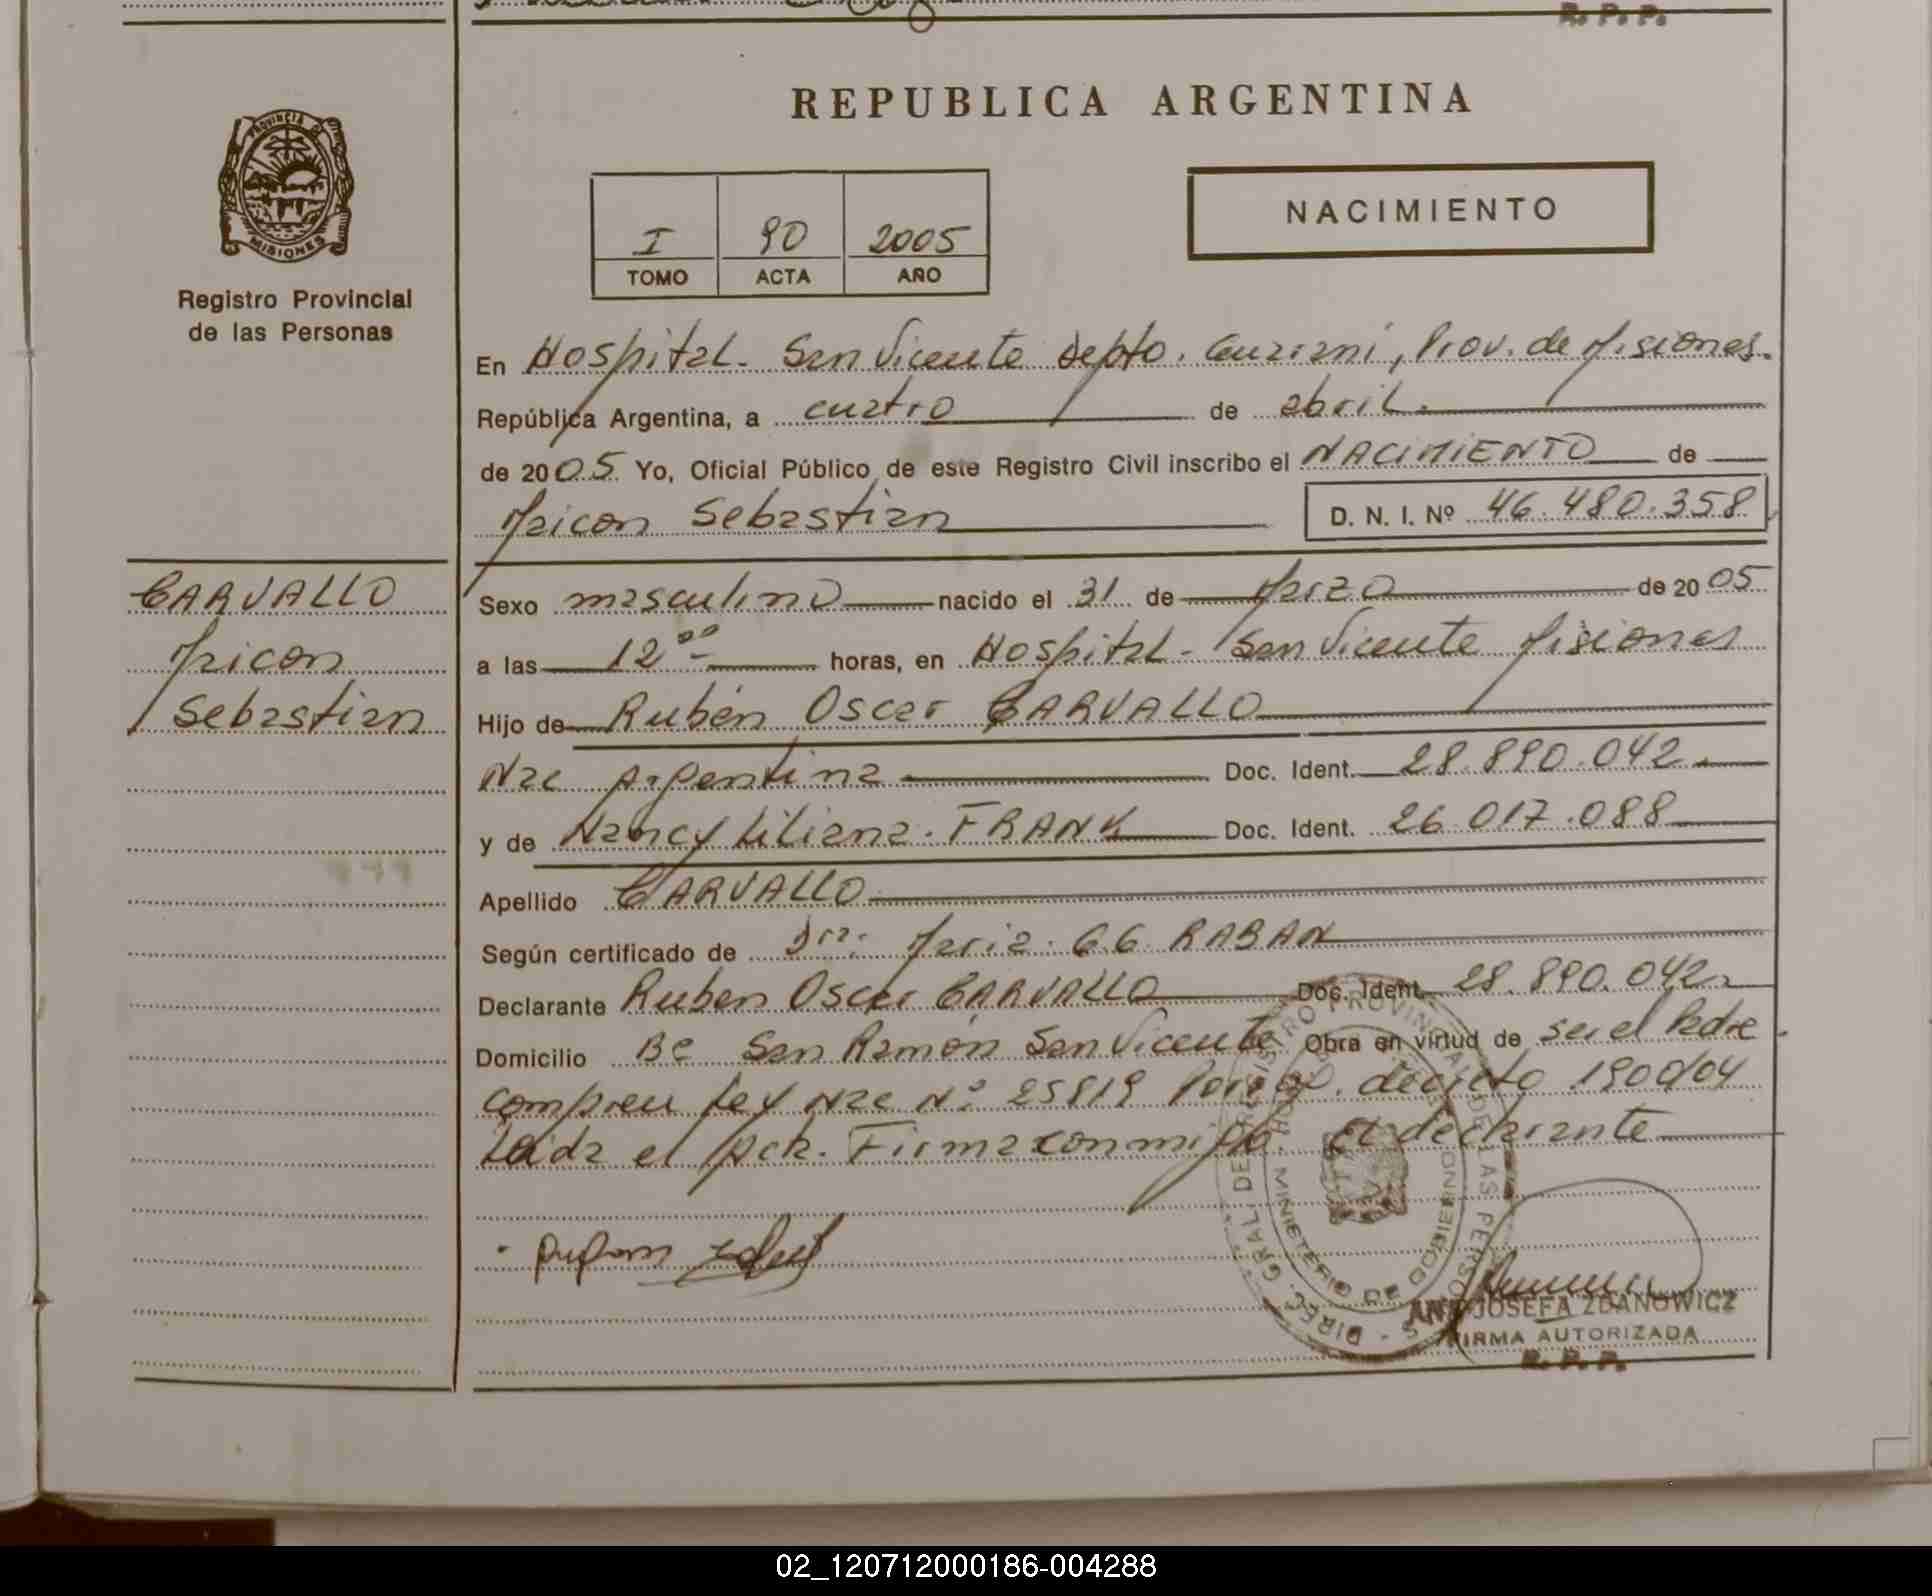 R. P. P.
REPUBLICA ARGENTINA
PROVINCIA DE
MISIONES
Registro Provincial
de las Personas
I 90 2005
TOMO ACTA AÑO
NACIMIENTO
En Hospital - San Vicente Depto. Guaraní, Prov. de Misiones.
República Argentina, a cuatro de abril.
de 2005 Yo, Oficial Público de este Registro Civil inscribo el NACIMIENTO de
Maicon Sebastian D. N. I. Nº 46.480.358
CARVALLO
Maicon
Sebastian
Sexo masculino nacido el 31 de Marzo de 2005
a las 12 00 horas, en Hospital - San Vicente Misiones
Hijo de Rubén Oscar CARVALLO
Nac Argentina Doc. Ident. 28.890.042
y de Nancy Liliana FRANK Doc. Ident. 26.017.088
Apellido CARVALLO
Según certificado de Dra. Maria G.G. RABAN
Declarante Ruben Oscar CARVALLO Doc. Ident. 28.890.042
Domicilio Bº San Ramón San Vicente Obra en virtud de ser el Padre
Ley Nac Nº 25819 decreto 1900/04
Leida el Acta. Firma conmigo el declarante
DIREC. GRAL. DE REGISTRO PROVINCIAL DE LAS PERSONAS
MINISTERIO DE GOBIERNO
ANA JOSEFA ZDANOWICZ
FIRMA AUTORIZADA
R. P. P.
02_120712000186-004288